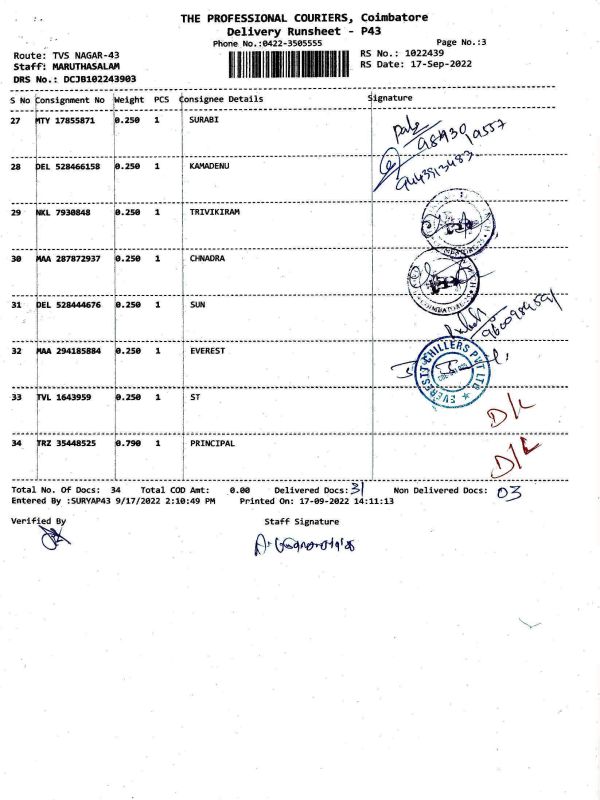 THE PROFESSIONAL COURIERS, Coimbatore
Delivery Runsheet - P43
Phone No.:0422-3505555
Page No.:3
Route: TVS NAGAR-43
RS No.: 1022439
Staff: MARUTHASALAM
RS Date: 17-Sep-2022
DRS No.: DCJB102243903
S No Consignment No Weight PCS Consignee Details Signature
27 MTY 17855871 0.250 1 SURABI
28 DEL 528466158 0.250 1 KAMADENU
9443913483
29 NKL 7930848 0.250 1 TRIVIKIRAM
30 MAA 287872937 0.250 1 CHNADRA
31 DEL 528444676 0.250 1 SUN
32 MAA 294185884 0.250 1 EVEREST
EVEREST CHILLERS PVT LTD
33 TVL 1643959 0.250 1 ST
D/L
34 TRZ 35448525 0.790 1 PRINCIPAL
D/L
Total No. Of Docs: 34 Total COD Amt: 0.00 Delivered Docs: 31 Non Delivered Docs: 03
Entered By :SURYAP43 9/17/2022 2:10:49 PM Printed On: 17-09-2022 14:11:13
Verified By Staff Signature